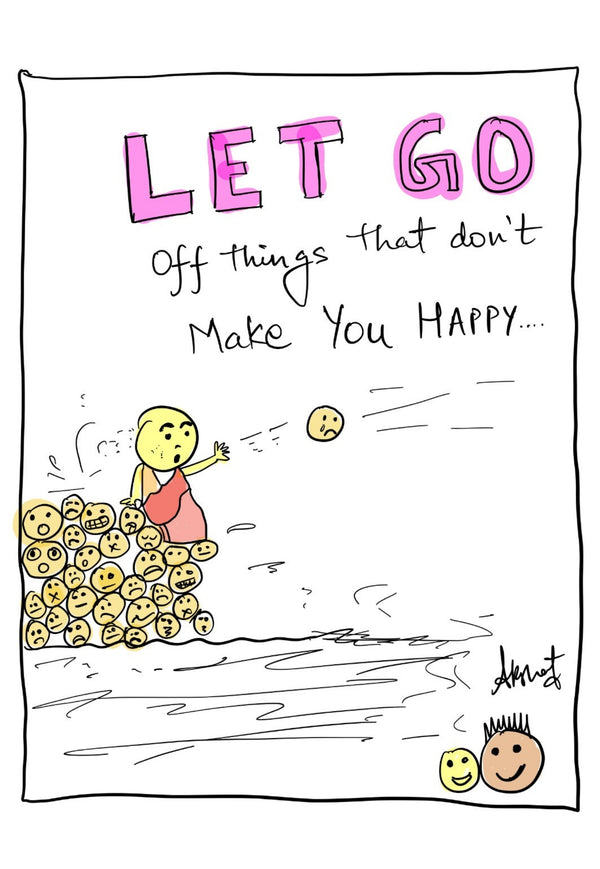 LET GO
Off things that don't
Make You HAPPY....
Akshat